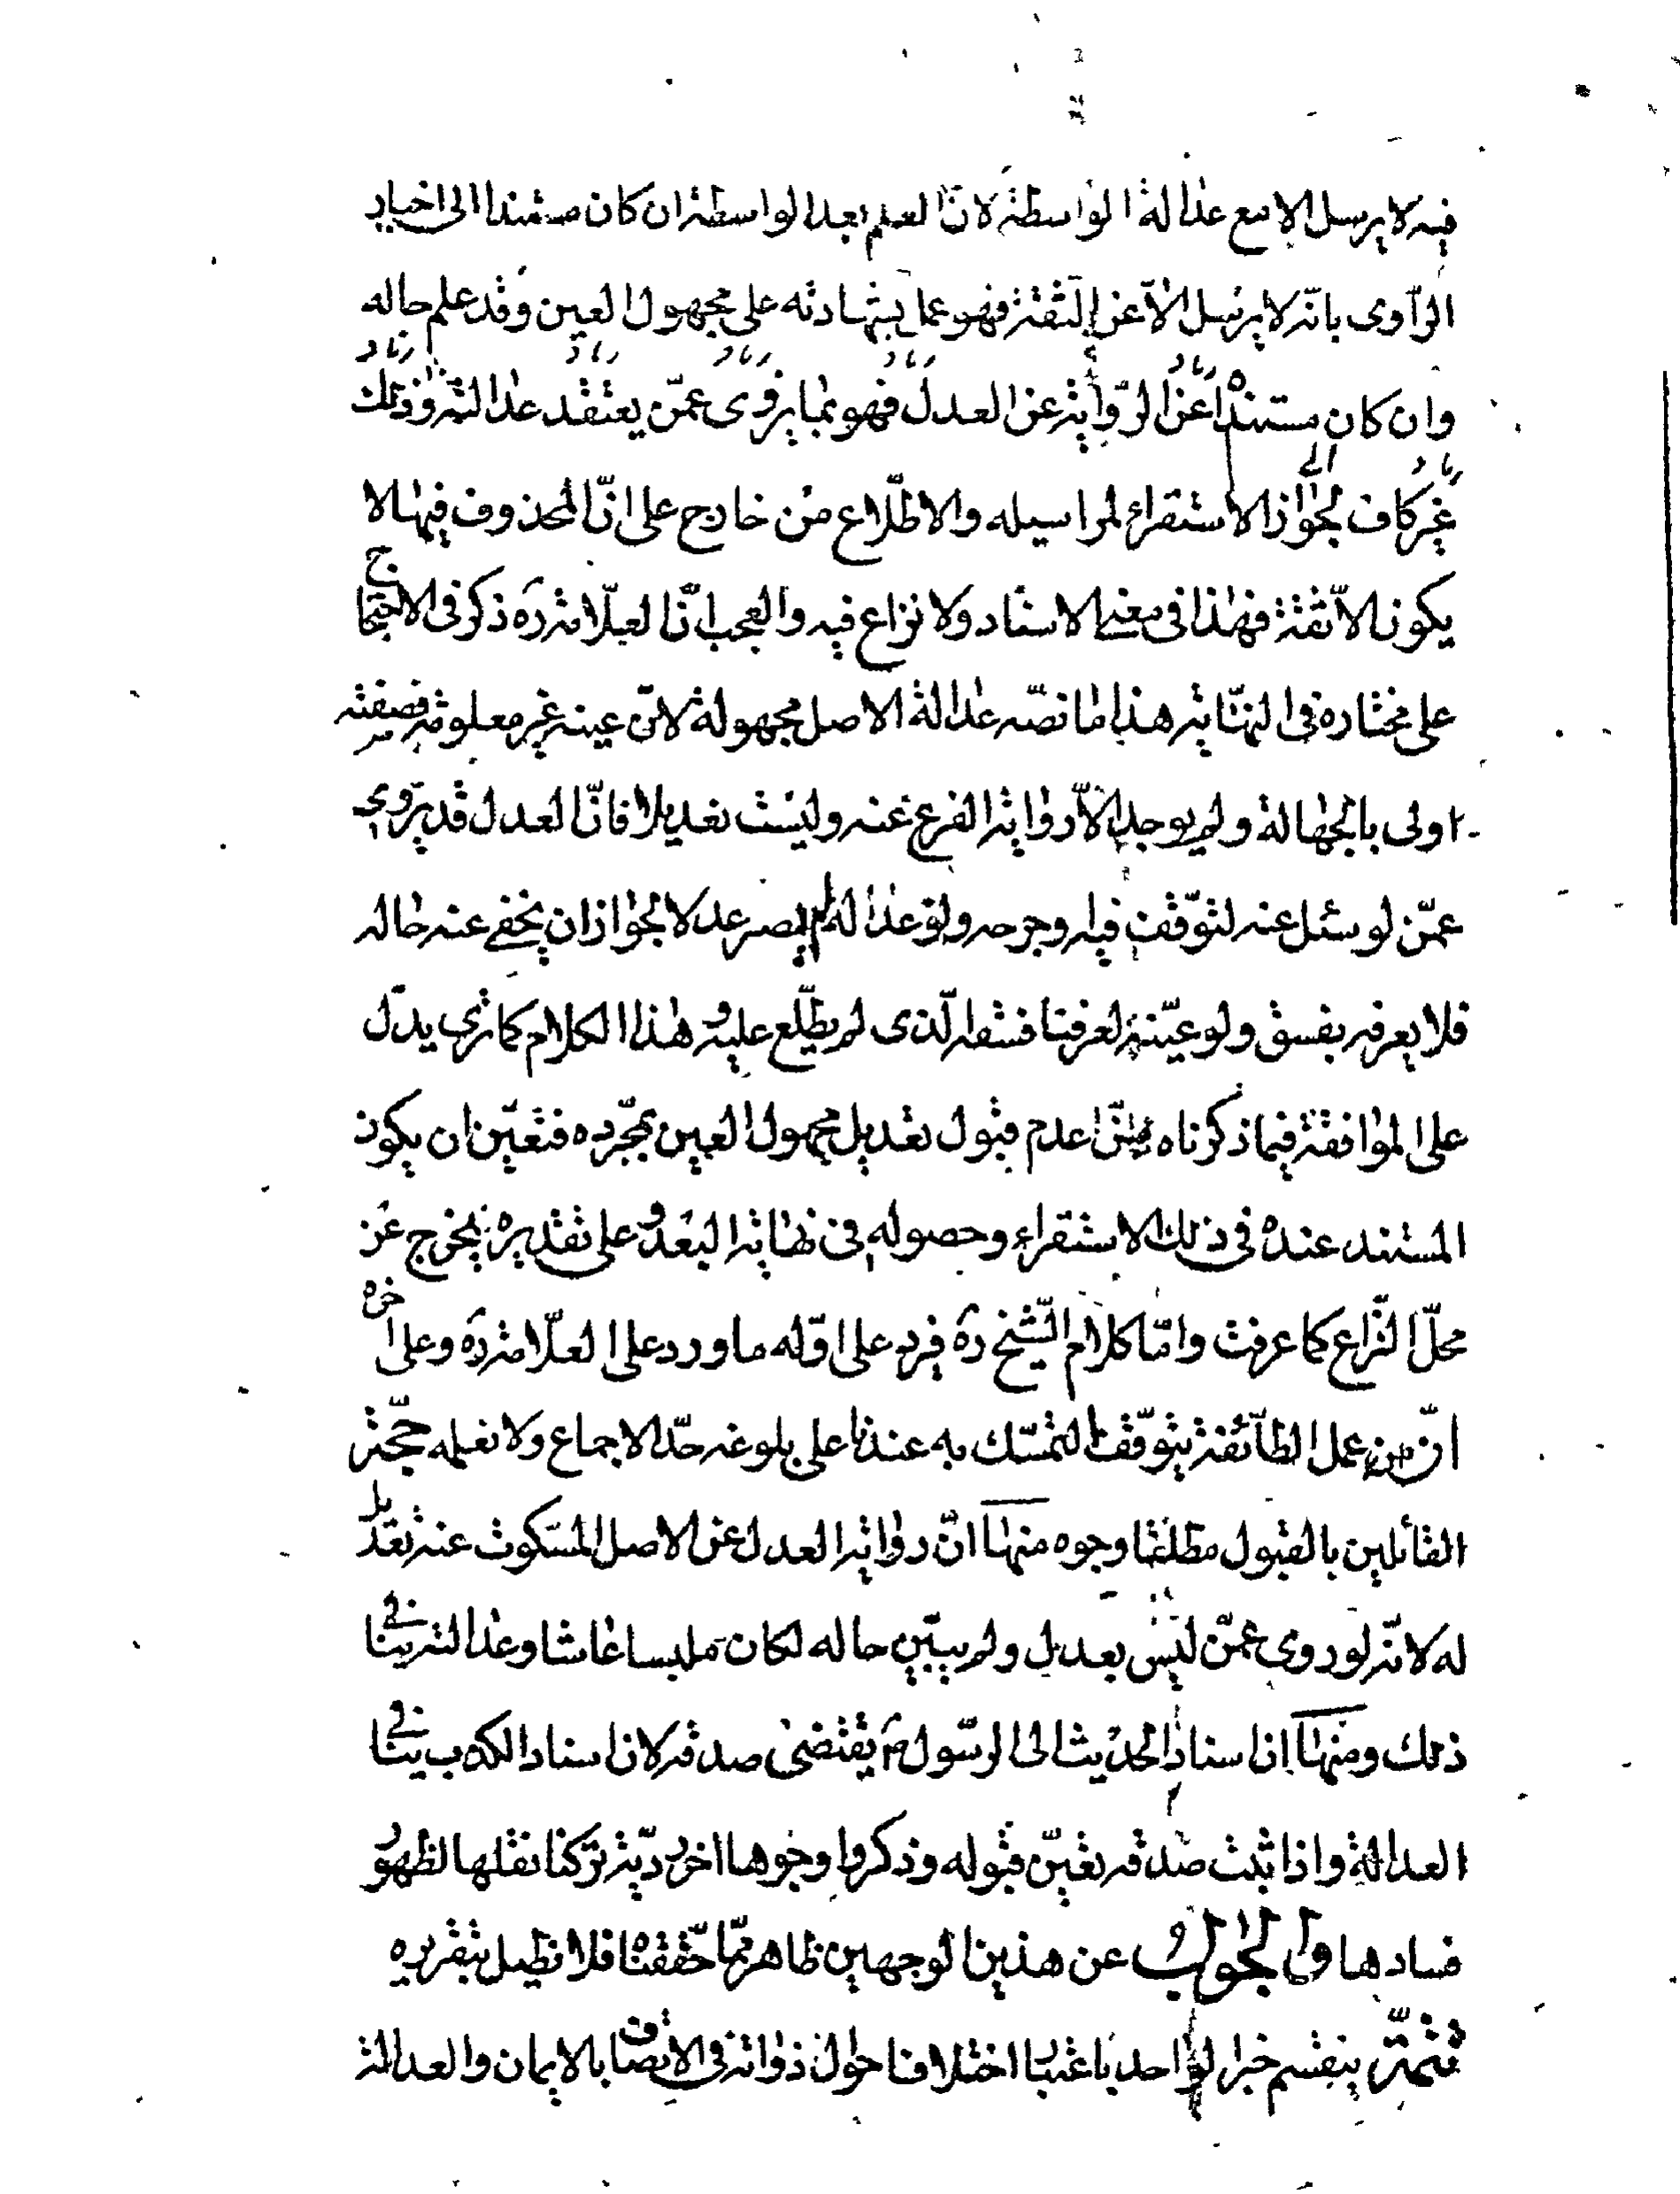 فيه لا يرسل الا مع عدالة الواسطة لانّ العلم بعدالواسطة ان كان مستندا الى اخبار
الرّاوى بانّه لا يرسل الاّ عن الثّقة فهو عمل بشهادته على مجهول العين وقد علم حاله
وان كان مستنده عن الرّواية عن العدل فهو بما يروى عمّن يعتقد عدالته وذلك
غير كاف لجواز الاستقراء لمراسيله والاطّلاع من خارج على انّ المحذوف فيها لا
يكون الاّ ثقة فهذا فى معنى الاسناد ولا نزاع فيه والعجب انّ العلّامة ره ذكر فى الاحتجاج
على مختاره فى النهاية هذا ما نصّه عدالة الاصل مجهولة لانّ عينه غير معلومة فصفته
اولى بالجهالة ولم يوجد الاّ رواية الفرع عنه وليست تعديلا فانّ العدل قد يروى
عمّن لو سئل عنه لتوقّف فيه وجرحه ولو عدله لم يصر عدلا لجواز ان يخفى عنه حاله
فلا يعرفه بفسق ولو عيّنه لعرفنا فسقه الّذى لم يطّلع عليه وهذا الكلام كما ترى يدلّ
على الموافقة فيما ذكرناه من عدم قبول تعديل مجهول العين بمجّرده فتعيّن ان يكون
المستند عنده فى ذلك الاستقراء وحصوله فى نهاية البعد وعلى تقديره يخرج عن
محلّ النّزاع كما عرفت وامّا كلام الشّيخ ره فيرد على اوّله ما ورد على العلّامة ره وعلى اخره
انّ من عمل الطّائفة يتوقّف التمسّك به عندنا على بلوغه حدّ الاجماع ولا نعلمه حجّة
القائلين بالقبول مطلقا وجوه منها انّ رواية العدل عن الاصل المسكوت عنه تعديل
له لانّه لو روى عمّن ليس بعدل ولم يبيّن حاله لكان ملبسا غاشا وعدالته ينافى
ذلك ومنها ان اسناد الحديث الى الرّسول ص يقتضى صدقه لان اسناد الكذب ينافى
العدالة واذا ثبت صدقه تعيّن قبوله وذكروا وجوها اخر رديّة تركنا نقلها لظهور
فسادها والجواب عن هذين الوجهين ظاهر ممّا حقّقناه فلا نطيل بتقريره
تتمّة ينقسم خبر الواحد باعتبار اختلاف احوال رواته فى الاتصاف بالايمان والعدالة